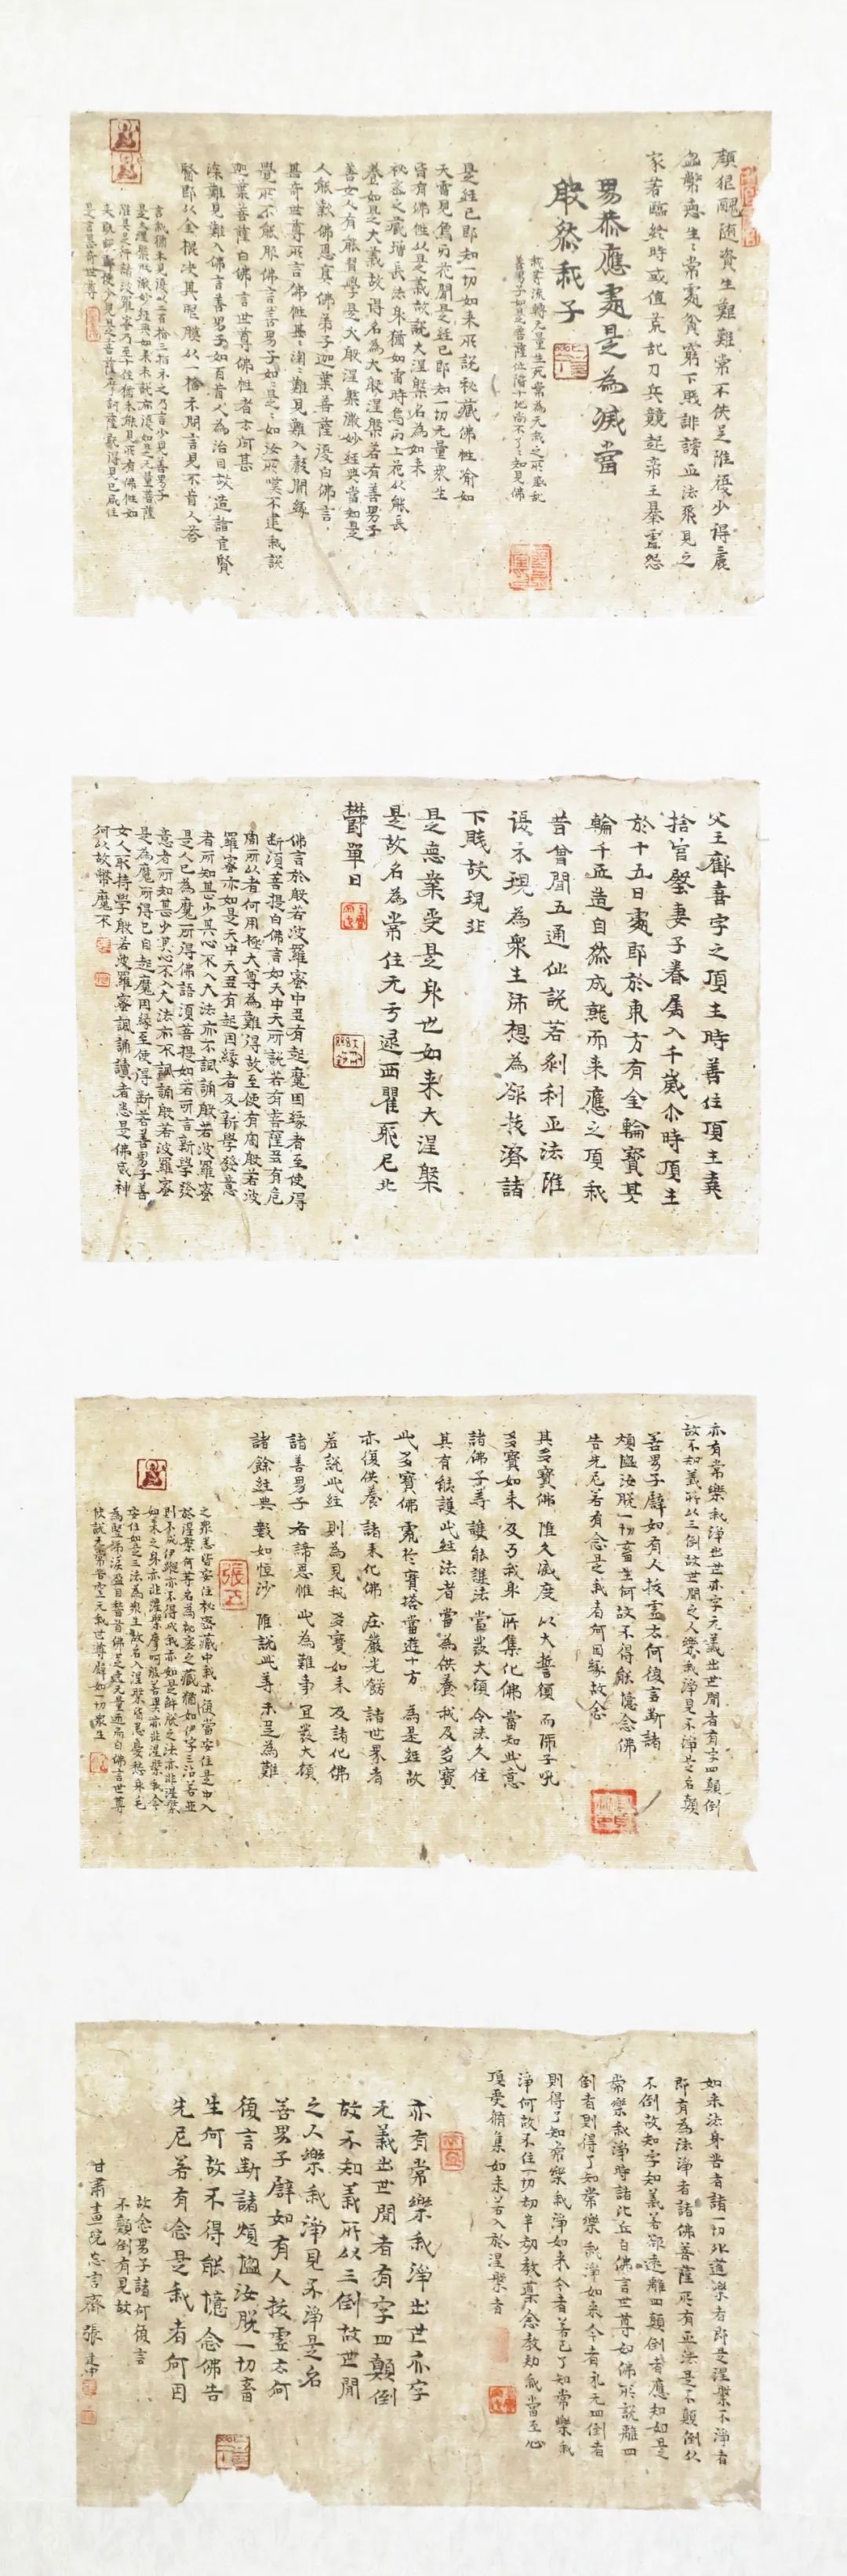 顏狠醜陋資生艱難常不供足雖復少得麁
弊惡生生常處貧窮下賤誹謗正法邪見之
家若臨終時或值荒乱刀兵競起帝王暴虐怨
男恭應處是為滅當
般恭我子
我等流轉无量生死常為无我之所惑乱
善男子如是菩薩位階十地尚不了了知見佛
是經已即知一切如來所說秘藏佛性喻如
天雷見烏牙花聞是經已即知一切无量衆生
皆有佛性以是義故說大涅槃名為如來
秘密之藏增長法身猶如雷時烏牙上花以能長
養如是大義故得名為大般涅槃若有善男子
善女人有能習學是大般涅槃微妙經典當知是
人能報佛恩真佛弟子迦葉菩薩復白佛言
甚奇世尊所言佛性甚深甚深難見難入聲聞緣
覺所不能服佛言善男子如是如是如汝所嘆不違我說
迦葉菩薩白佛言世尊佛性者云何甚
深難見難入佛言善男子如百盲人為治目故造詣良醫
醫即以金棍决其眼膜以一指示問言見不盲人答
言我猶未見復以二指三指示之乃言少見善男子
是大涅槃微妙經典如來未說亦復如是无量菩薩
雖具足行諸波羅蜜乃至十住猶未能見所有佛性如
來既說即便少見是菩薩摩訶薩既得見已咸作
是言甚奇世尊
父王歡喜字之頂生時善住頂王委
捨宮堂妻子眷屬入千歲尒時頂生
於十五日處即於東方有金輪寶其
輪千匝造自然成就而來應之頂我
昔曾聞五通仙說若刹利正法雖
復示現為衆生沛想為欲救濟諸
下賤故現此
是惡業受是身世如來大涅槃
是故名為常住无亏逮西瞿耶尼北
欝單曰
佛言於般若波羅蜜中五有起魔因緣者至使得
断須菩提白佛言如天中天所說若有菩薩五有危
害所以者何用極大尊為難得故至使有害般若波
羅蜜亦如是天中天五有起因緣者及新學發意
者所知甚少其心不入大法亦不諷誦般若波羅蜜
是人已為魔所得佛語須菩提如若所言新學發
意者所知甚少其心不入大法亦不諷誦般若波羅蜜
是為魔所得已自起魔因緣至使得断若善男子善
女人取持學般若波羅蜜諷誦讀者悉是佛威神
何以故弊魔不
亦有常樂我淨出世亦字无義出世間者有字四顛倒
故不知義所以三倒故世間之人樂我淨見不淨是名顛
善男子譬如有人拔虛空何復言断諸
煩惱汝脫一切畜生何故不得能憶念佛
告先尼若有念是我者何因緣故念
其多寶佛雖久滅度以大誓願而師子吼
多寶如來及与我身所集化佛當知此意
諸佛子等誰能護法當發大願令法久住
其有能護此經法者當為供養我及多寶
此多寶佛處於寶塔當遊十方為是經故
亦復供養諸來化佛莊嚴光餝諸世界者
若說此經則為見我多寶如來及諸化佛
諸善男子各諦思惟此為難事宜發大願
諸餘經典數如恒沙雖說此等未足為難
之衆悉皆安住秘密藏中我亦復當安住是中入
於涅槃何等名為秘密之藏猶如伊字三沾若並
則不成伊縱亦不得成我亦如是解脫之法亦非涅槃
如來之身亦非涅槃摩訶般若亦非涅槃我今
安住如是三法為衆生故名入涅槃悉憂愁身毛
為竪涕淚盈目稽首佛足遶无量迊而白佛言世尊
快說无常苦空无我世尊譬如一切衆生
張
如來法身苦者諸一切外道樂者即是涅槃不淨者
即有為法淨者諸佛菩薩所有正法是不顛倒以
不倒故知字知義若欲遠離四顛倒者應知如是
常樂我淨時諸比丘白佛言世尊如佛所說離四
倒者則得了知常樂我淨如來今者永无四倒者
則得了知常樂我淨如來今者善已了知常樂我
淨何故不住一切劫半劫教導念教勑我當至心
頂受脩集如來若入於涅槃者
亦有常樂我淨出世亦字
无義出世間者有字四顛倒
故不知義所以三倒故世間
之人樂我淨見不淨是名
善男子譬如有人拔虛空何
復言断諸煩惱汝脫一切畜
生何故不得能憶念佛告
先尼若有念是我者何因
故念男子諸何復言
不顛倒有見故
甘肅畫院忘言齋張建中